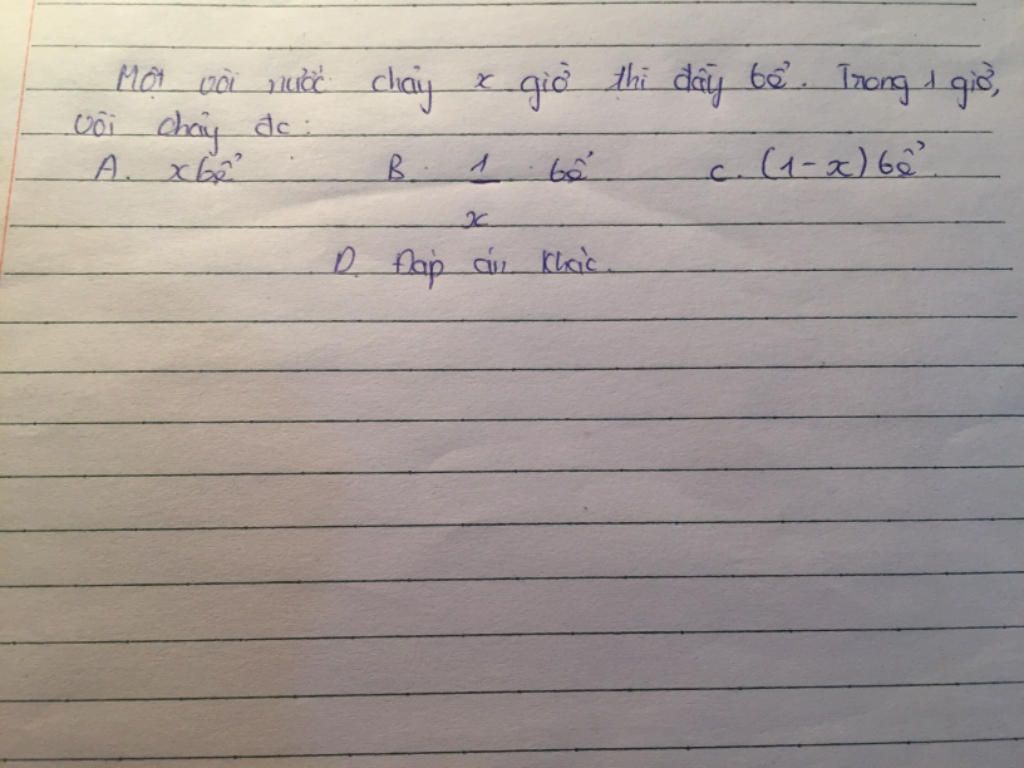 Một vòi nước chảy x giờ thì đầy bể. Trong 1 giờ,
vòi chảy đc:
A. x bể B. 1/x bể C. (1-x) bể.
D. Đáp án khác.